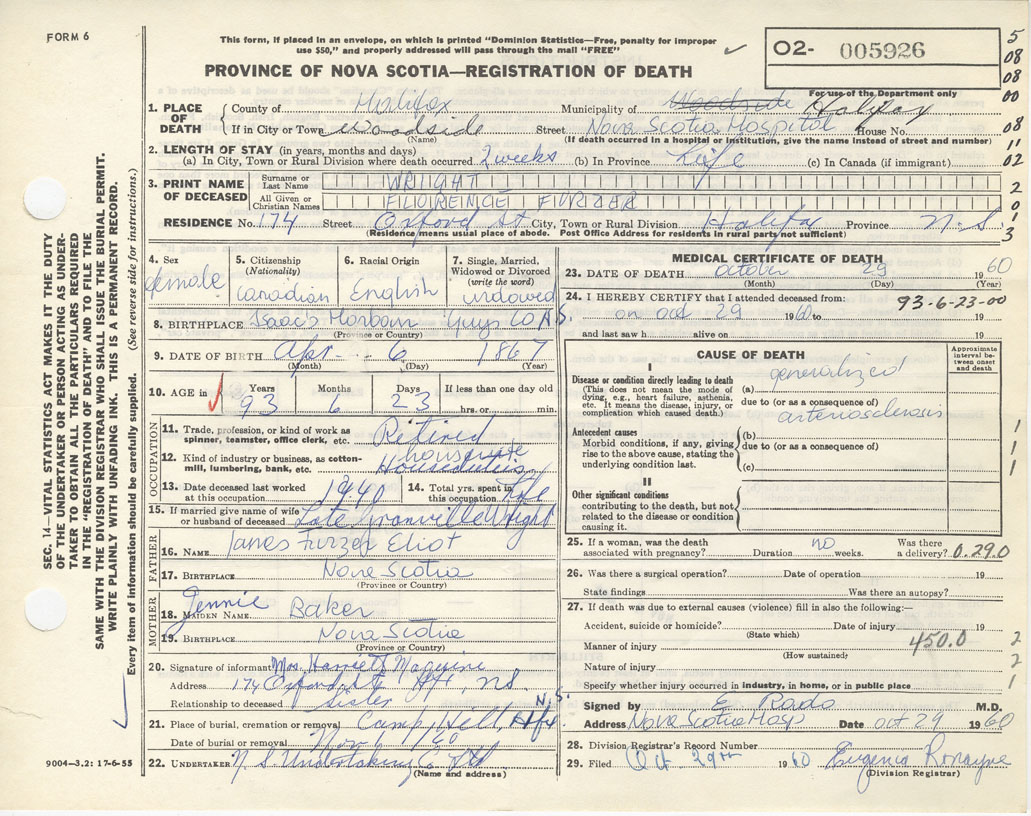 FORM 6
This form, if placed in an envelope, on which is printed "Dominion Statistics—Free, penalty for improper
use $50," and properly addressed will pass through the mail "FREE"
O2- 005926
For use of the Department only
PROVINCE OF NOVA SCOTIA—REGISTRATION OF DEATH
5
08
08
00
08
11
02
2
0
1
3
1. PLACE OF DEATH
County of Halifax Municipality of Woodside Halifax
If in City or Town Woodside Street Nova Scotia Hospital House No.
(Name) (If death occurred in a hospital or institution, give the name instead of street and number)
2. LENGTH OF STAY (in years, months and days)
(a) In City, Town or Rural Division where death occurred 2 weeks (b) In Province Life (c) In Canada (if immigrant)
3. PRINT NAME OF DECEASED
Surname or Last Name WRIGHT
All Given or Christian Names FLORENCE FURZER
RESIDENCE No. 174 Street Oxford St City, Town or Rural Division Halifax Province N.S
(Residence means usual place of abode. Post Office Address for residents in rural party not sufficient)
4. Sex female
5. Citizenship (Nationality) Canadian
6. Racial Origin English
7. Single, Married, Widowed or Divorced (write the word) widowed
8. BIRTHPLACE Isaac's Harbour Guys CO N.S.
(Province or Country)
9. DATE OF BIRTH Apr. 6 1867
(Month) (Day) (Year)
10. AGE in Years 93 Months 6 Days 23 If less than one day old
hrs. or min.
OCCUPATION
11. Trade, profession, or kind of work as spinner, teamster, office clerk, etc. Retired
housewife
12. Kind of industry or business, as cotton-mill, lumbering, bank, etc. Houseduties
13. Date deceased last worked at this occupation 1940
14. Total yrs. spent in this occupation Life
15. If married give name of wife or husband of deceased Late Granville Wright
FATHER
16. NAME James Furzer Eliot
17. BIRTHPLACE Nova Scotia
(Province or Country)
MOTHER
18. MAIDEN NAME Jennie Baker
19. BIRTHPLACE Nova Scotia
(Province or Country)
20. Signature of informant Mrs. Harriett Maguire
Address 174 Oxford St Hfx, N.S.
Relationship to deceased sister
21. Place of burial, cremation or removal Camp Hill, Hfx N.S.
Date of burial or removal Nov 1/60
22. UNDERTAKER N.S. Undertaking Co Ltd
(Name and address)
MEDICAL CERTIFICATE OF DEATH
23. DATE OF DEATH October 29 1960
(Month) (Day) (Year)
24. I HEREBY CERTIFY that I attended deceased from: 93-6-23-00
on oct 29 1960 to 19
and last saw h alive on 19
CAUSE OF DEATH
Approximate interval between onset and death
I
Disease or condition directly leading to death
(This does not mean the mode of dying, e.g., heart failure, asthenia, etc. It means the disease, injury, or complication which caused death.)
(a) generalized
due to (or as a consequence of)
arteriosclerosis
Antecedent causes
Morbid conditions, if any, giving rise to the above cause, stating the underlying condition last.
(b)
due to (or as a consequence of)
(c)
1
1
1
II
Other significant conditions contributing to the death, but not related to the disease or condition causing it.
25. If a woman, was the death associated with pregnancy? Duration no weeks. Was there a delivery? 0.290
26. Was there a surgical operation? Date of operation 19
State findings Was there an autopsy?
27. If death was due to external causes (violence) fill in also the following:—
Accident, suicide or homicide? Date of injury 19
(State which)
Manner of injury 450.0 2
(How sustained)
Nature of injury 2
Specify whether injury occurred in industry, in home, or in public place 1
Signed by E. Rado M.D.
Address Nova Scotia Hosp Date oct 29 1960
28. Division Registrar's Record Number
29. Filed Oct 29th 1960 Eugenia Ronayne
(Division Registrar)
SEC. 14—VITAL STATISTICS ACT MAKES IT THE DUTY
OF THE UNDERTAKER OR PERSON ACTING AS UNDER-
TAKER TO OBTAIN ALL THE PARTICULARS REQUIRED
IN THE "REGISTRATION OF DEATH" AND TO FILE THE
SAME WITH THE DIVISION REGISTRAR WHO SHALL ISSUE THE BURIAL PERMIT.
WRITE PLAINLY WITH UNFADING INK. THIS IS A PERMANENT RECORD.
Every item of information should be carefully supplied. (See reverse side for instructions.)
9004—3.2: 17-6-55